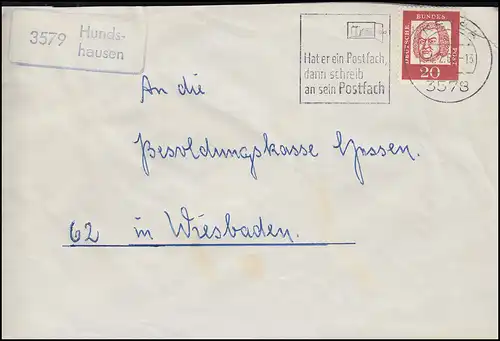 3579 Hunds-
hausen
Hat er ein Postfach,
dann schreib
an sein Postfach
DEUTSCHE BUNDESPOST
20
3578
An die
Besoldungskasse Hessen.
62 in Wiesbaden.